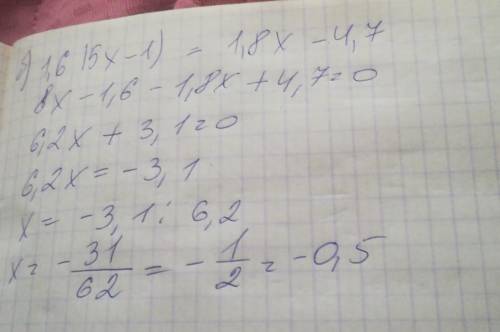 б) 1,6 (5x-1) = 1,8x - 4,7
8x - 1,6 - 1,8x + 4,7 = 0
6,2x + 3,1 = 0
6,2x = -3,1
x = -3,1 : 6,2
x = -31/62 = -1/2 = -0,5